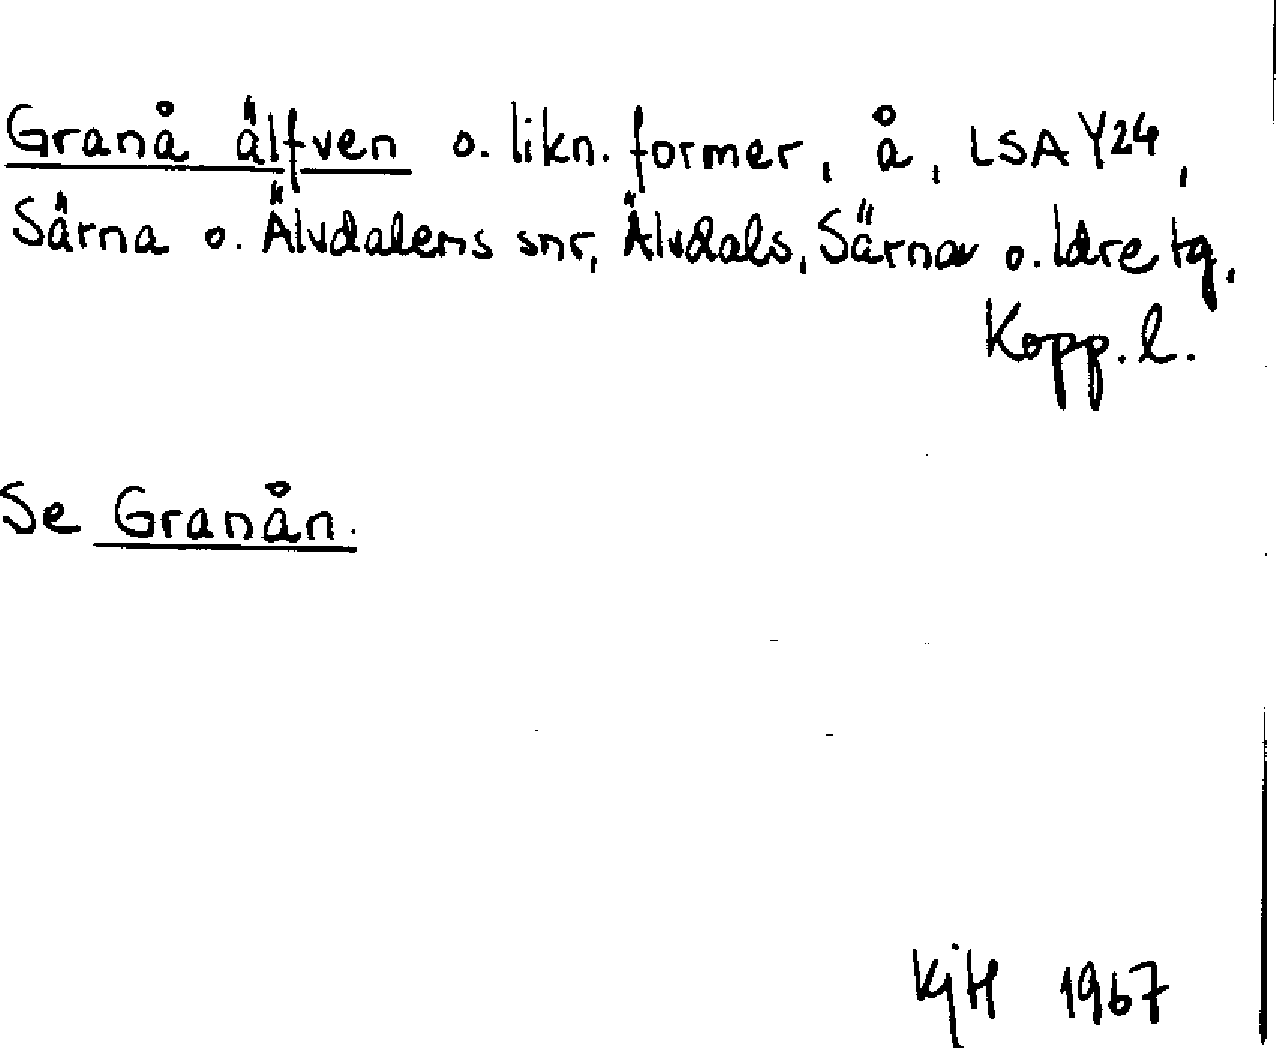 Granå älfven o. likn. former, å, LSA Y24,
Särna o. Älvdalens snr, Älvdals, Särna o. Idre tg,
Kopp. l.
Se Granån.
KjH 1967